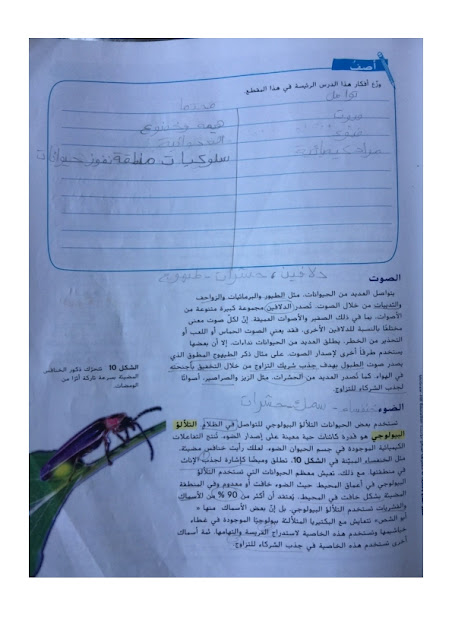 أصف
وزّع أفكار هذا الدرس الرئيسة في هذا المقطع.
صوت
ضوء
سلوكيات
دلافين، حشرات - طيهوج
الصوت
يتواصل العديد من الحيوانات، مثل الطيور والبرمائيات والزواحف
والثدييات من خلال الصوت. تُصدر الدلافين مجموعة كبيرة متنوعة من
الأصوات، بما في ذلك الصفير والأصوات العميقة. إنّ لكلّ صوت معنى
مختلفًا بالنسبة للدلافين الأخرى، فقد يعني الصوت الحماس أو اللعب أو
التحذير من الخطر. يطلق العديد من الحيوانات نداءات، إلا أن بعضها
يستخدم طرقًا أخرى لإصدار الصوت. على مثال ذكر الطيهوج المطوق الذي
يصدر صوت الطبول بهدف جذب شريك التزاوج من خلال التخفيق بأجنحته
في الهواء. كما تُصدر العديد من الحشرات، مثل الزيز والصراصير، أصواتًا
لجذب الشركاء للتزاوج.
الشكل 10 تتحرّك ذكور الخنافس
المضيئة بسرعة تاركة أثرًا من
الومضات.
الضوء خنفساء - سمك - حشرات
تستخدم بعض الحيوانات التلألؤ البيولوجي للتواصل في الظلام. التلألؤ
البيولوجي هو قدرة كائنات حية معينة على إصدار الضوء. تُنتج التفاعلات
الكيميائية الموجودة في جسم الحيوان الضوء. لعلك رأيت خنافس مضيئة،
مثل الخنفساء المبيّنة في الشكل 10، تطلق وميضًا كإشارة لجذب الإناث
في منطقتها. مع ذلك، تعيش معظم الحيوانات التي تستخدم التلألؤ
البيولوجي في أعماق المحيط، حيث الضوء خافت أو معدوم. وفي المنطقة
المضيئة بشكل خافت في المحيط، يُعتقد أن أكثر من 90 % من الأسماك
والقشريات تستخدم التلألؤ البيولوجي. بل إنّ بعض الأسماك، منها "
أبو الشص" تتعايش مع البكتيريا المتلألئة بيولوجيًا الموجودة في غطاء
خياشيمها وتستخدم هذه الخاصية لاستدراج الفريسة والتهامها. ثمة أسماك
أخرى تستخدم هذه الخاصية في جذب الشركاء للتزاوج.